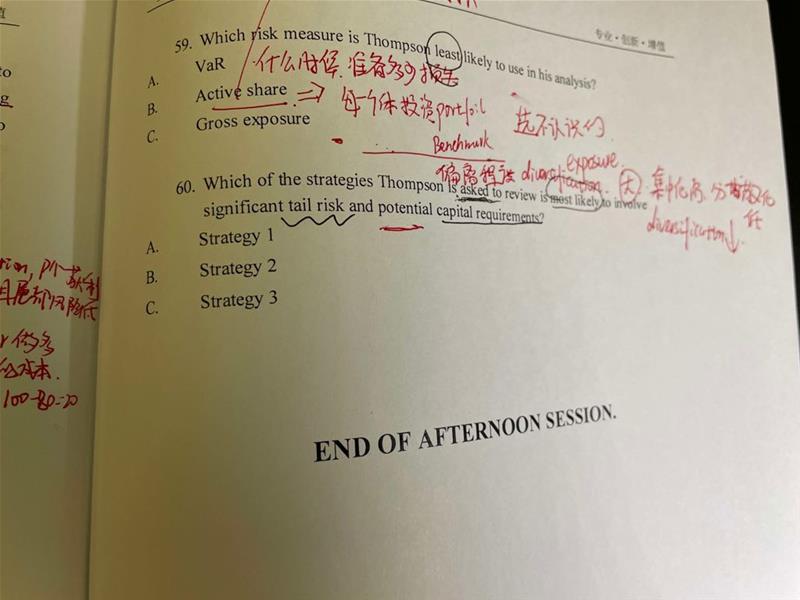 值
专业・创新・增值
59. Which risk measure is Thompson least likely to use in his analysis?
A. VaR 什么时候.准备多少损失
B. Active share ⇒ 每个体投资portfoil
C. Gross exposure
选不认识的.
Benchmark
偏离程度 diversification. exposure.
大 集中化高.分散化
低
diversification↓.
60. Which of the strategies Thompson is asked to review is most likely to involve
significant tail risk and potential capital requirements?
A. Strategy 1
B. Strategy 2
C. Strategy 3
END OF AFTERNOON SESSION.
to
ng
o
获利
尾部风险低
做多
成本.
100-80=20